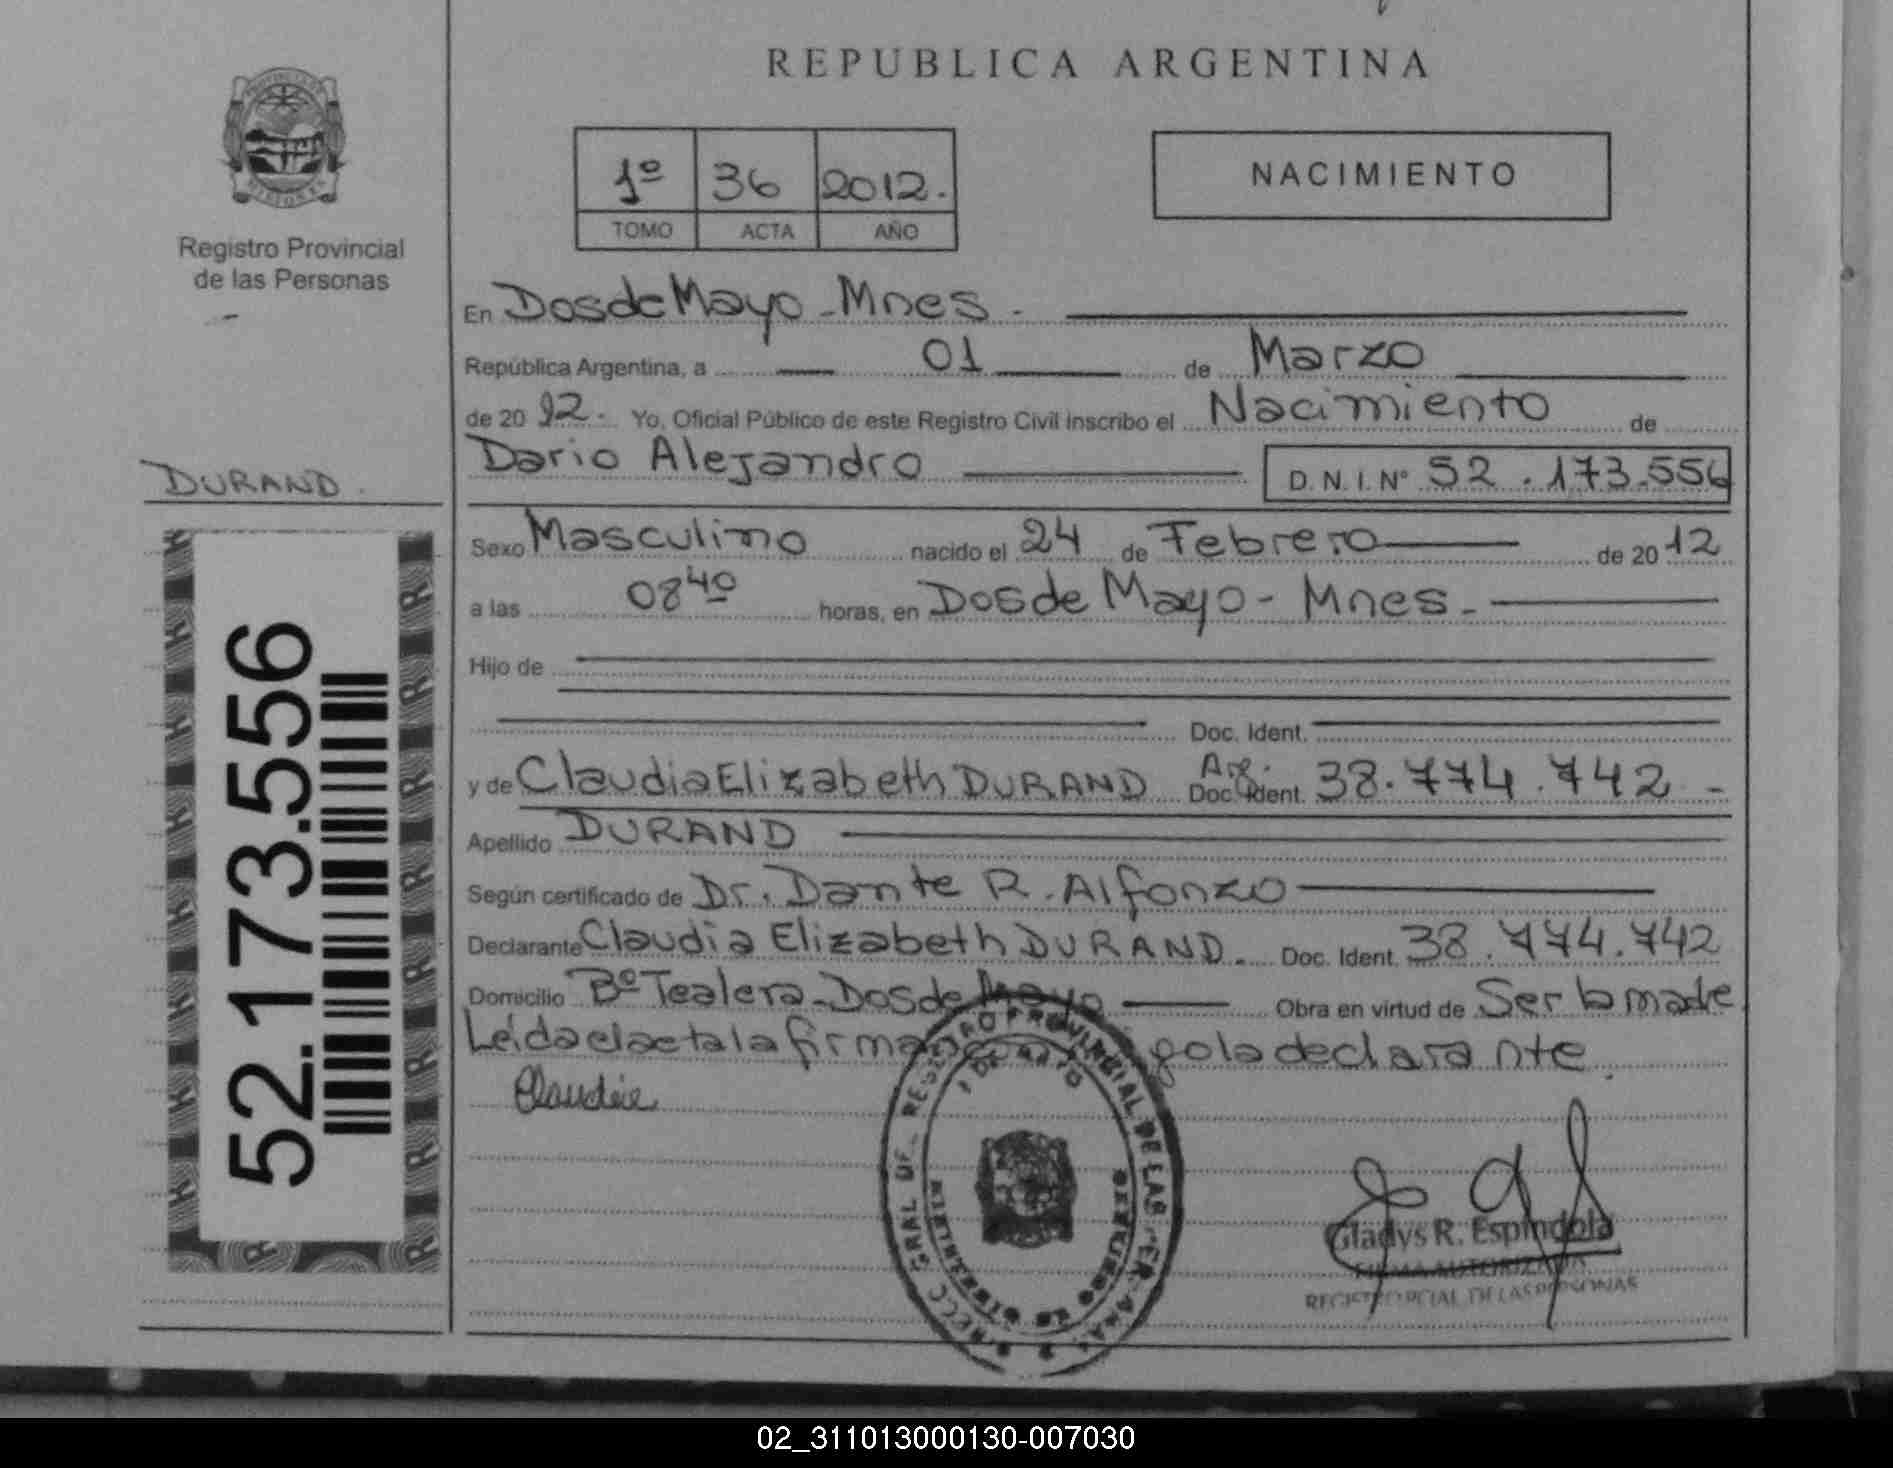 REPUBLICA ARGENTINA
1º 36 2012.
TOMO ACTA AÑO
NACIMIENTO
Registro Provincial
de las Personas
En Dos de Mayo - Mnes.
República Argentina, a 01 de Marzo
de 20 12. Yo, Oficial Público de este Registro Civil inscribo el Nacimiento de
Dario Alejandro D.N.I. Nº 52.173.556
DURAND.
Sexo Masculino nacido el 24 de Febrero de 20 12
a las 08 40 horas, en Dos de Mayo - Mnes.
Hijo de
Doc. Ident.
y de Claudia Elizabeth DURAND Doc. Ident. Arg. 38.774.742 -
Apellido DURAND
Según certificado de Dr. Dante R. Alfonzo
Declarante Claudia Elizabeth DURAND. Doc. Ident. 38.774.742
Domicilio Bº Tealera - Dos de Mayo Obra en virtud de Ser la madre
Leida el acta la firma declarante
Claudia
52.173.556
REGISTRO PROVINCIAL DE LAS
Gladys R. Espindola
FIRMA AUTORIZADA
REGISTRO PCIAL DE LAS PERSONAS
02_311013000130-007030